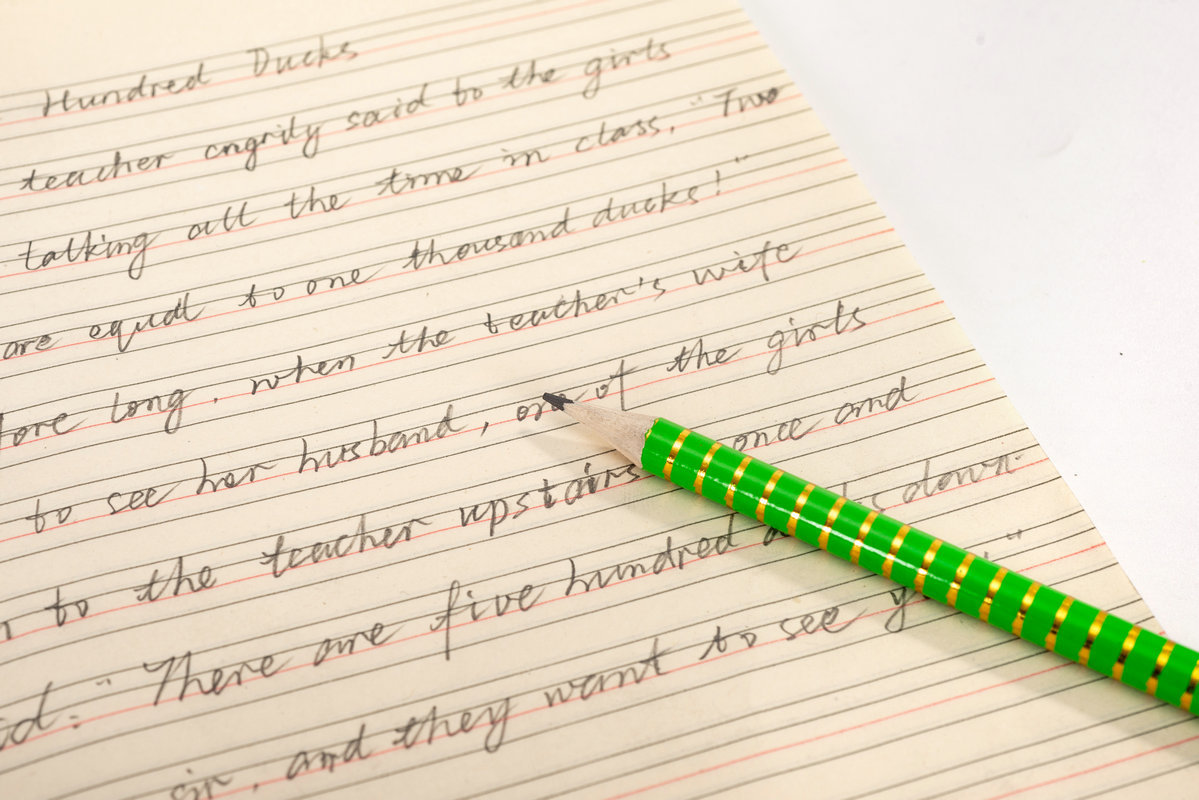 Hundred Ducks
teacher angrily said to the girls
talking all the time in class, "Two
are equal to one thousand ducks!"
fore long, when the teacher's wife
to see her husband, one of the girls
to the teacher upstairs once and
id: "There are five hundred down."
sir, and they want to see